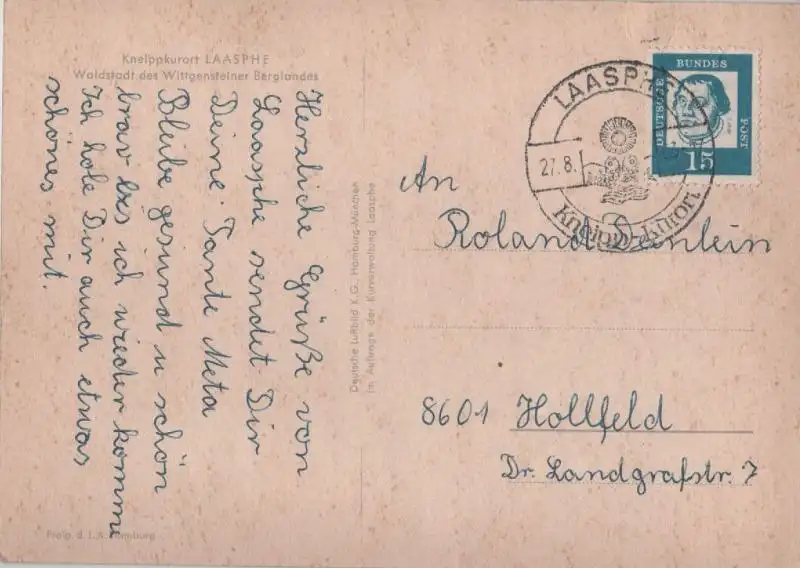 Kneippkurort LAASPHE
Waldstadt des Wittgensteiner Berglandes
Herzliche Grüße von
Laasphe sendet Dir
Deine Tante Meta
Bleibe gesund u schön
brav bis ich wieder komme
Ich hole Dir auch etwas
schönes mit.
Deutsche Luftbild K.G., Hamburg-München
Im Auftrage der Kurverwaltung Laasphe
LAASPHE
27.8.
Kneipp-Kurort
DEUTSCHE
BUNDES
POST
15
An
Roland
8601 Hollfeld
Dr. Landgrafstr. 7
Freig. d. L.A. Hamburg